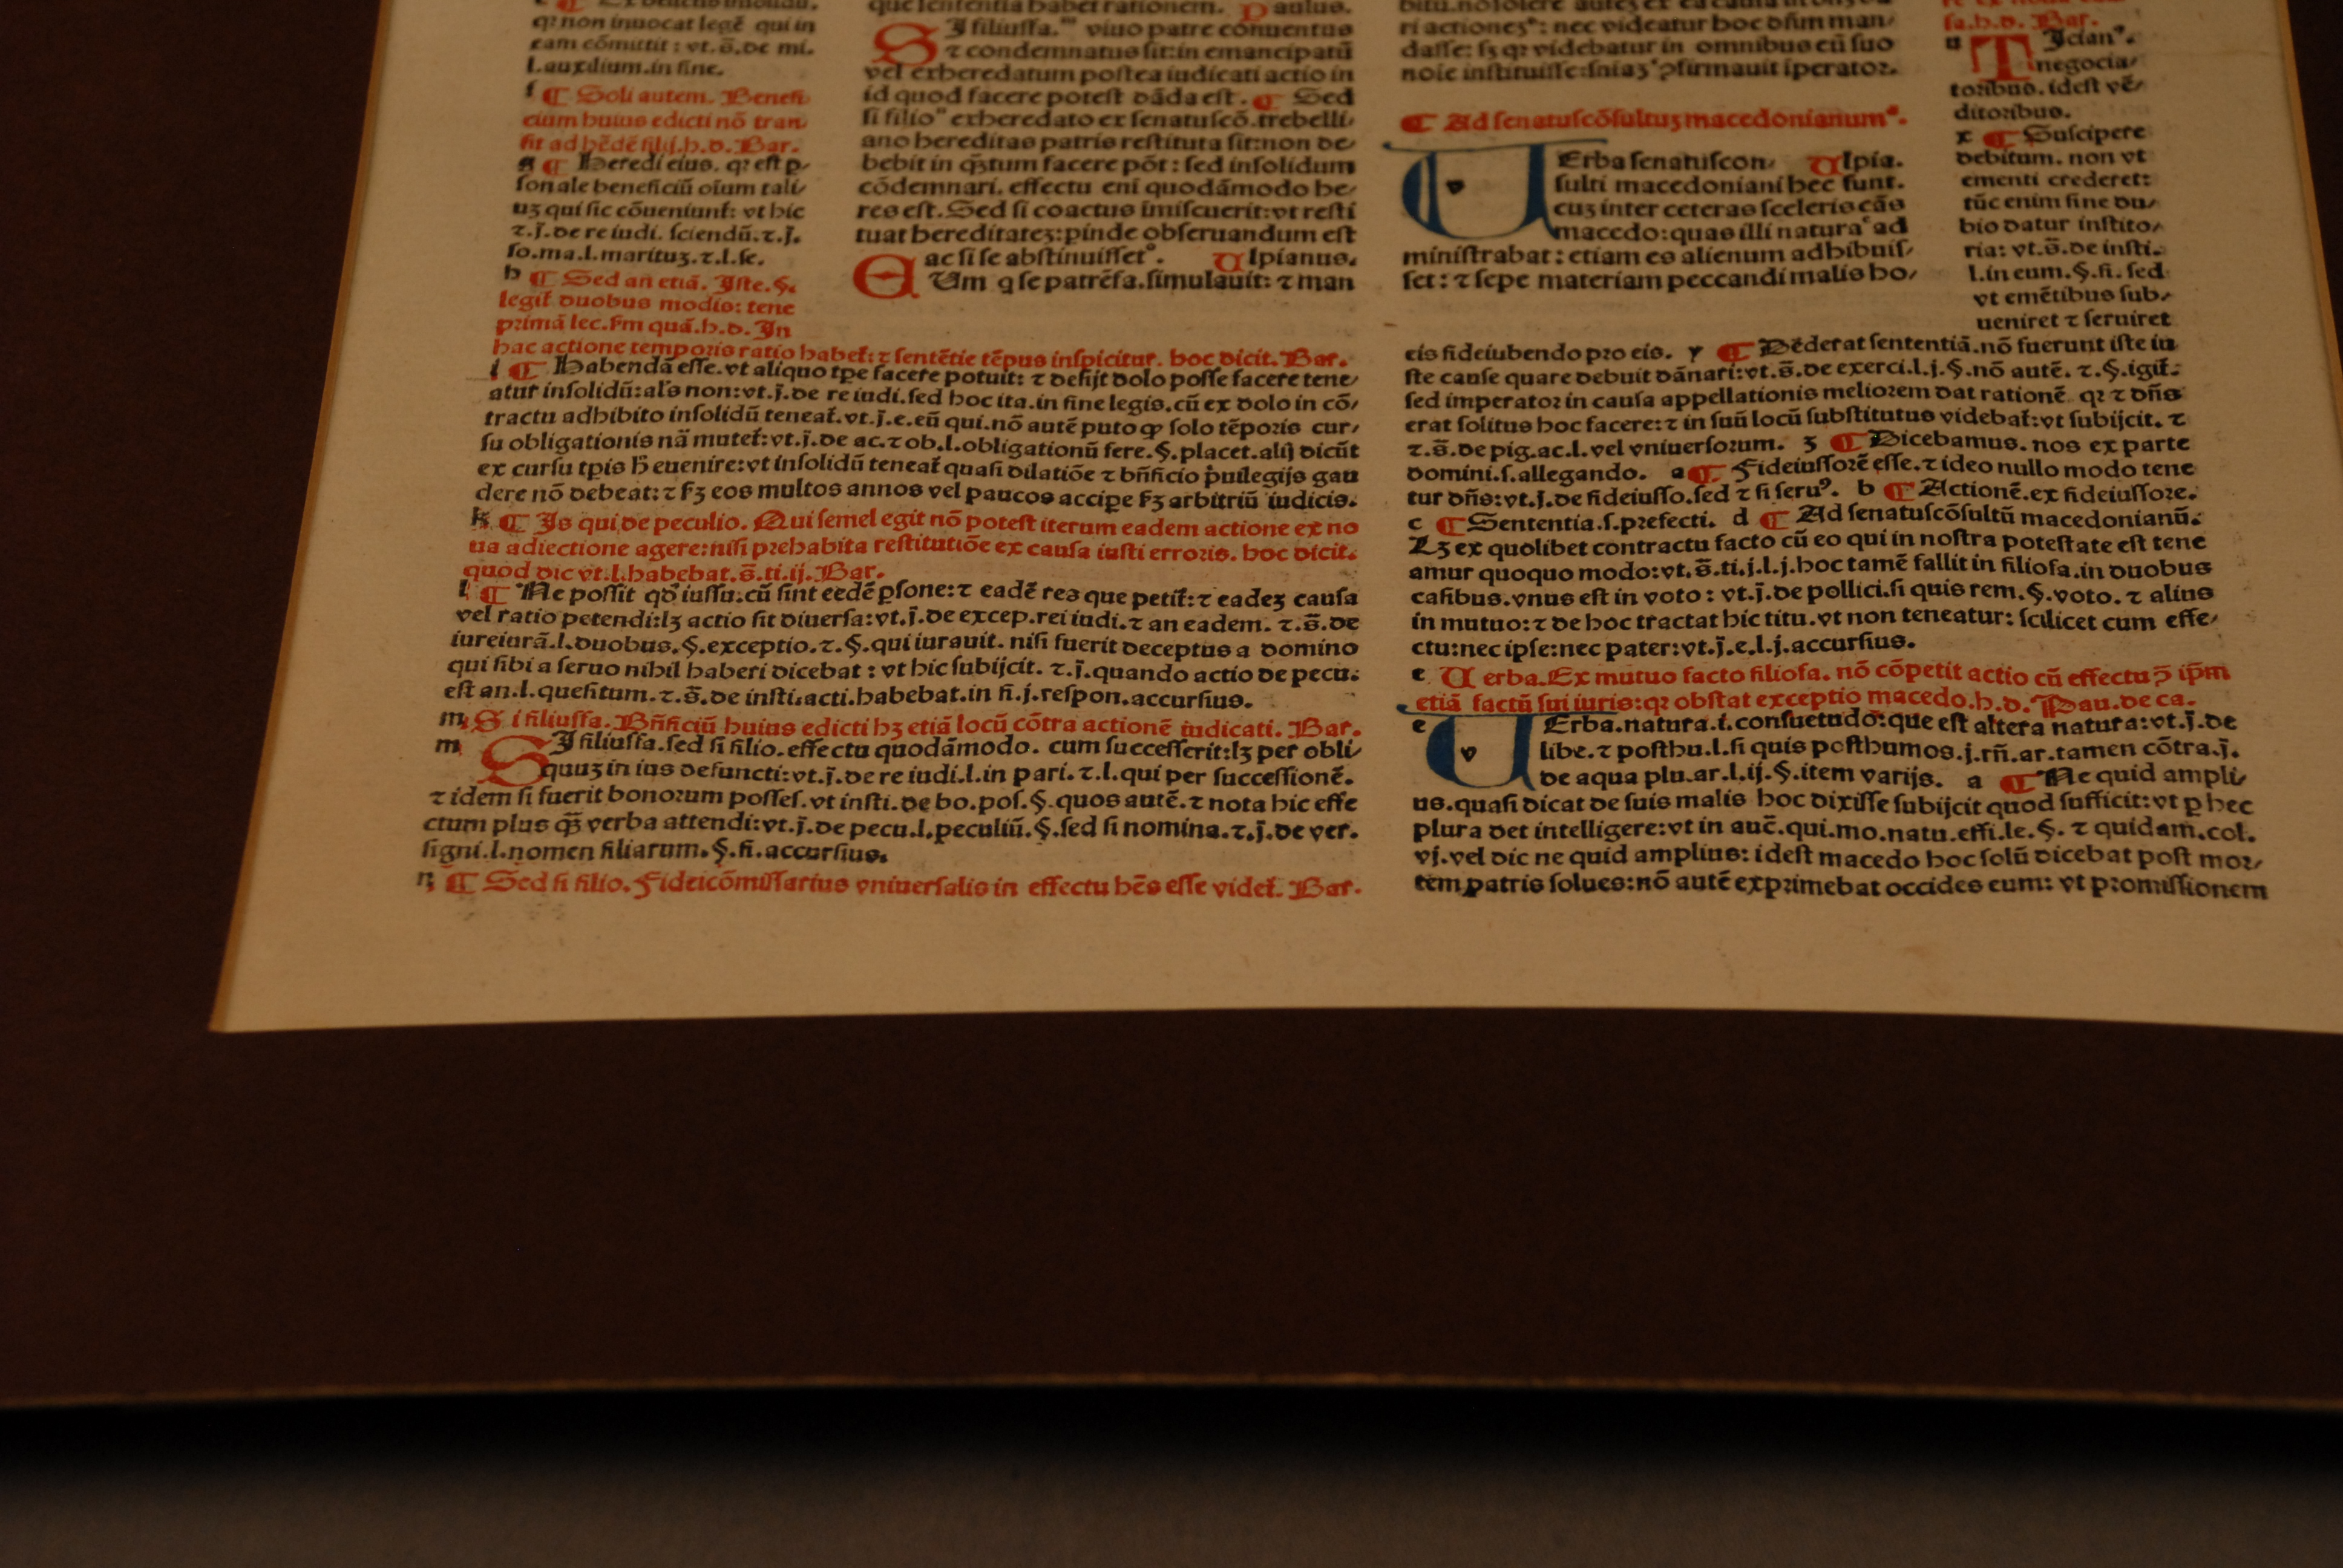 q2 non inuocat legē qui in
eam cōmittit : vt. s̄. de mi.
l. auxilium. in fine.
f ¶ Soli autem. Benefi
cium huius edicti nō tran
sit ad hēdē filij. h. d. Bar.
g ¶ Heredi eius. q2 est ꝑ
sonale beneficiū oīum tali/
uꝫ qui sic cōueniunt̄: vt hic
⁊. j̄. de re iudi. sciendū. ⁊. j̄.
so. ma. l. maritus. ⁊. l. se.
h ¶ Sed an etiā. Iste. §.
legit̄ duobus modis: tene
primā lec. ẜm quā. h. d. In
hac actione temporis ratio habet̄: ⁊ sentētie tēpus inspicitur. hoc dicit. Bar.
i ¶ Habendā esse. vt aliquo tꝑe facere potuit: ⁊ desijt dolo posse facere tene/
atur insolidū: al's non: vt. j̄. de re iudi. sed hoc ita. in fine legis. cū ex dolo in cō/
tractu adhibito insolidū teneat̄. vt. j̄. e. eū qui. nō autē puto ꝙ solo tēporis cur/
su obligationis nā mutet̄: vt. j̄. de ac. ⁊ ob. l. obligationū fere. §. placet. alij dicūt
ex cursu tꝑis h̄ euenire: vt insolidū teneat̄ quasi dilatiōe ⁊ bn̄ficio p̄uilegijs gau
dere nō debeat: ⁊ ẜꝫ eos multos annos vel paucos accipe ẜꝫ arbitriū iudicis.
k ¶ Is qui de peculio. Qui semel egit nō potest iterum eadem actione ex no
ua adiectione agere: nisi prehabita restitutiōe ex causa iusti erroris. hoc dicit.
quod dic vt. l. habebat. s̄. ti. ij. Bar.
l ¶ Ne possit qđ iussu. cū sint eedē ꝑsone: ⁊ eadē res que petit̄: ⁊ eadeꝫ causa
vel ratio petendi: lꝫ actio sit diuersa: vt. j̄. de excep. rei iudi. ⁊ an eadem. ⁊. s̄. de
iureiurā. l. duobus. §. exceptio. ⁊. §. qui iurauit. nisi fuerit deceptus a domino
qui sibi a seruo nihil haberi dicebat : vt hic subijcit. ⁊. j̄. quando actio de pecu.
est an. l. quesitum. ⁊. s̄. de insti. acti. habebat. in fi. j. respon. accursius.
m S i filiussa. Bn̄ficiū huius edicti hꝫ etiā locū cōtra actionē iudicati. Bar.
m SI filiussa. sed si filio. effectu quodāmodo. cum successerit: lꝫ per obli/
quuꝫ in ius defuncti: vt. j̄. de re iudi. l. in pari. ⁊. l. qui per successionē.
⁊ idem si fuerit bonorum posses. vt insti. de bo. pos. §. quos autē. ⁊ nota hic effe
ctum plus q̄ꝫ verba attendi: vt. j̄. de pecu. l. peculiū. §. sed si nomina. ⁊. j̄. de ver.
signi. l. nomen filiarum. §. fi. accursius.
n ¶ Sed si filio. Fideicōmissarius vniuersalis in effectu hēs esse videt̄. Bar.
que sententia habet rationem. Paulus.
SI filiussa. m viuo patre conuentus
⁊ condemnatus sit: in emancipatū
vel exheredatum postea iudicati actio in
id quod facere potest dāda est. ¶ Sed
si filio n exheredato ex senatuscō. trebelli/
ano hereditas patris restituta sit: non de/
bebit in q̄ꝫtum facere pōt : sed insolidum
cōdemnari. effectu eni quodāmodo he/
res est. Sed si coactus īmiscuerit: vt resti
tuat hereditateꝫ: ꝓinde obseruandum est
ac si se abstinuisset o. Ulpianus.
EUm q se patrēfa. simulauit: ⁊ man
ri actioneꝫ: nec videatur hoc dn̄m man/
dasse: sꝫ q2 videbatur in omnibus eū suo
noie instituisse: sn̄iaꝫ ꝯfirmauit īperator.
¶ Ad senatuscōsultuꝫ macedonianum d.
UErba senatuscon/ Ulpia.
sulti macedoniani hec sunt.
cuꝫ inter ceteras sceleris cās
macedo: quas illi natura e ad
ministrabat : etiam es alienum adhibuis/
set : ⁊ sepe materiam peccandi malis ho/
sa. h. d. Bar.
u TIcian9.
negocia/
toribus. idest vē/
ditoribus.
x ¶ Suscipere
debitum. non vt
ementi crederet:
tūc enim sine du/
bio datur instito/
ria: vt. s̄. de insti.
l. in eum. §. fi. sed
vt emētibus sub/
ueniret ⁊ seruiret
eis fideiubendo pro eis. y ¶ Dēderat sententiā. nō fuerunt iste iu
ste cause quare debuit dānari: vt. s̄. de exerci. l. j. §. nō autē. ⁊. §. igit̄.
sed imperator in causa appellationis meliorem dat rationē q2 ⁊ dn̄s
erat solitus hoc facere: ⁊ in suū locū substitutus videbat̄: vt subijcit. ⁊
⁊. s̄. de pig. ac. l. vel vniuersorum. ꝫ ¶ Dicebamus. nos ex parte
domini. s. allegando. a ¶ Fideiussorē esse. ⁊ ideo nullo modo tene
tur dn̄s: vt. j̄. de fideiusso. sed ⁊ si seru9. b ¶ Actionē. ex fideiussore.
c ¶ Sententia. s. prefecti. d ¶ Ad senatuscōsultū macedonianū.
Lꝫ ex quolibet contractu facto cū eo qui in nostra potestate est tene
amur quoquo modo: vt. s̄. ti. j. l. j. hoc tamē fallit in filiofa. in duobus
casibus. vnus est in voto : vt. j̄. de pollici. si quis rem. §. voto. ⁊ alius
in mutuo: ⁊ de hoc tractat hic titu. vt non teneatur: scilicet cum effe/
ctu: nec ipse: nec pater: vt. j̄. e. l. j. accursius.
e U erba. Ex mutuo facto filiofa. nō cōpetit actio cū effectu ꝯ ip̄m
etiā factū sui iuris: q2 obstat exceptio macedo. h. d. Pau. de ca.
e UErba. natura. i. consuetudo: que est altera natura: vt. j̄. de
libe. ⁊ posthu. l. si quis posthumos. j. rn̄. ar. tamen cōtra. j̄.
de aqua plu. ar. l. ij. §. item varijs. a ¶ Ne quid ampli/
us. quasi dicat de suis malis hoc dixisse subijcit quod sufficit: vt ꝑ hec
plura det intelligere: vt in auc̄. qui. mo. natu. effi. le. §. ⁊ quidam. col.
vj. vel dic ne quid amplius: idest macedo hoc solū dicebat post mor/
tem patris solues: nō autē exprimebat occides eum: vt promissionem